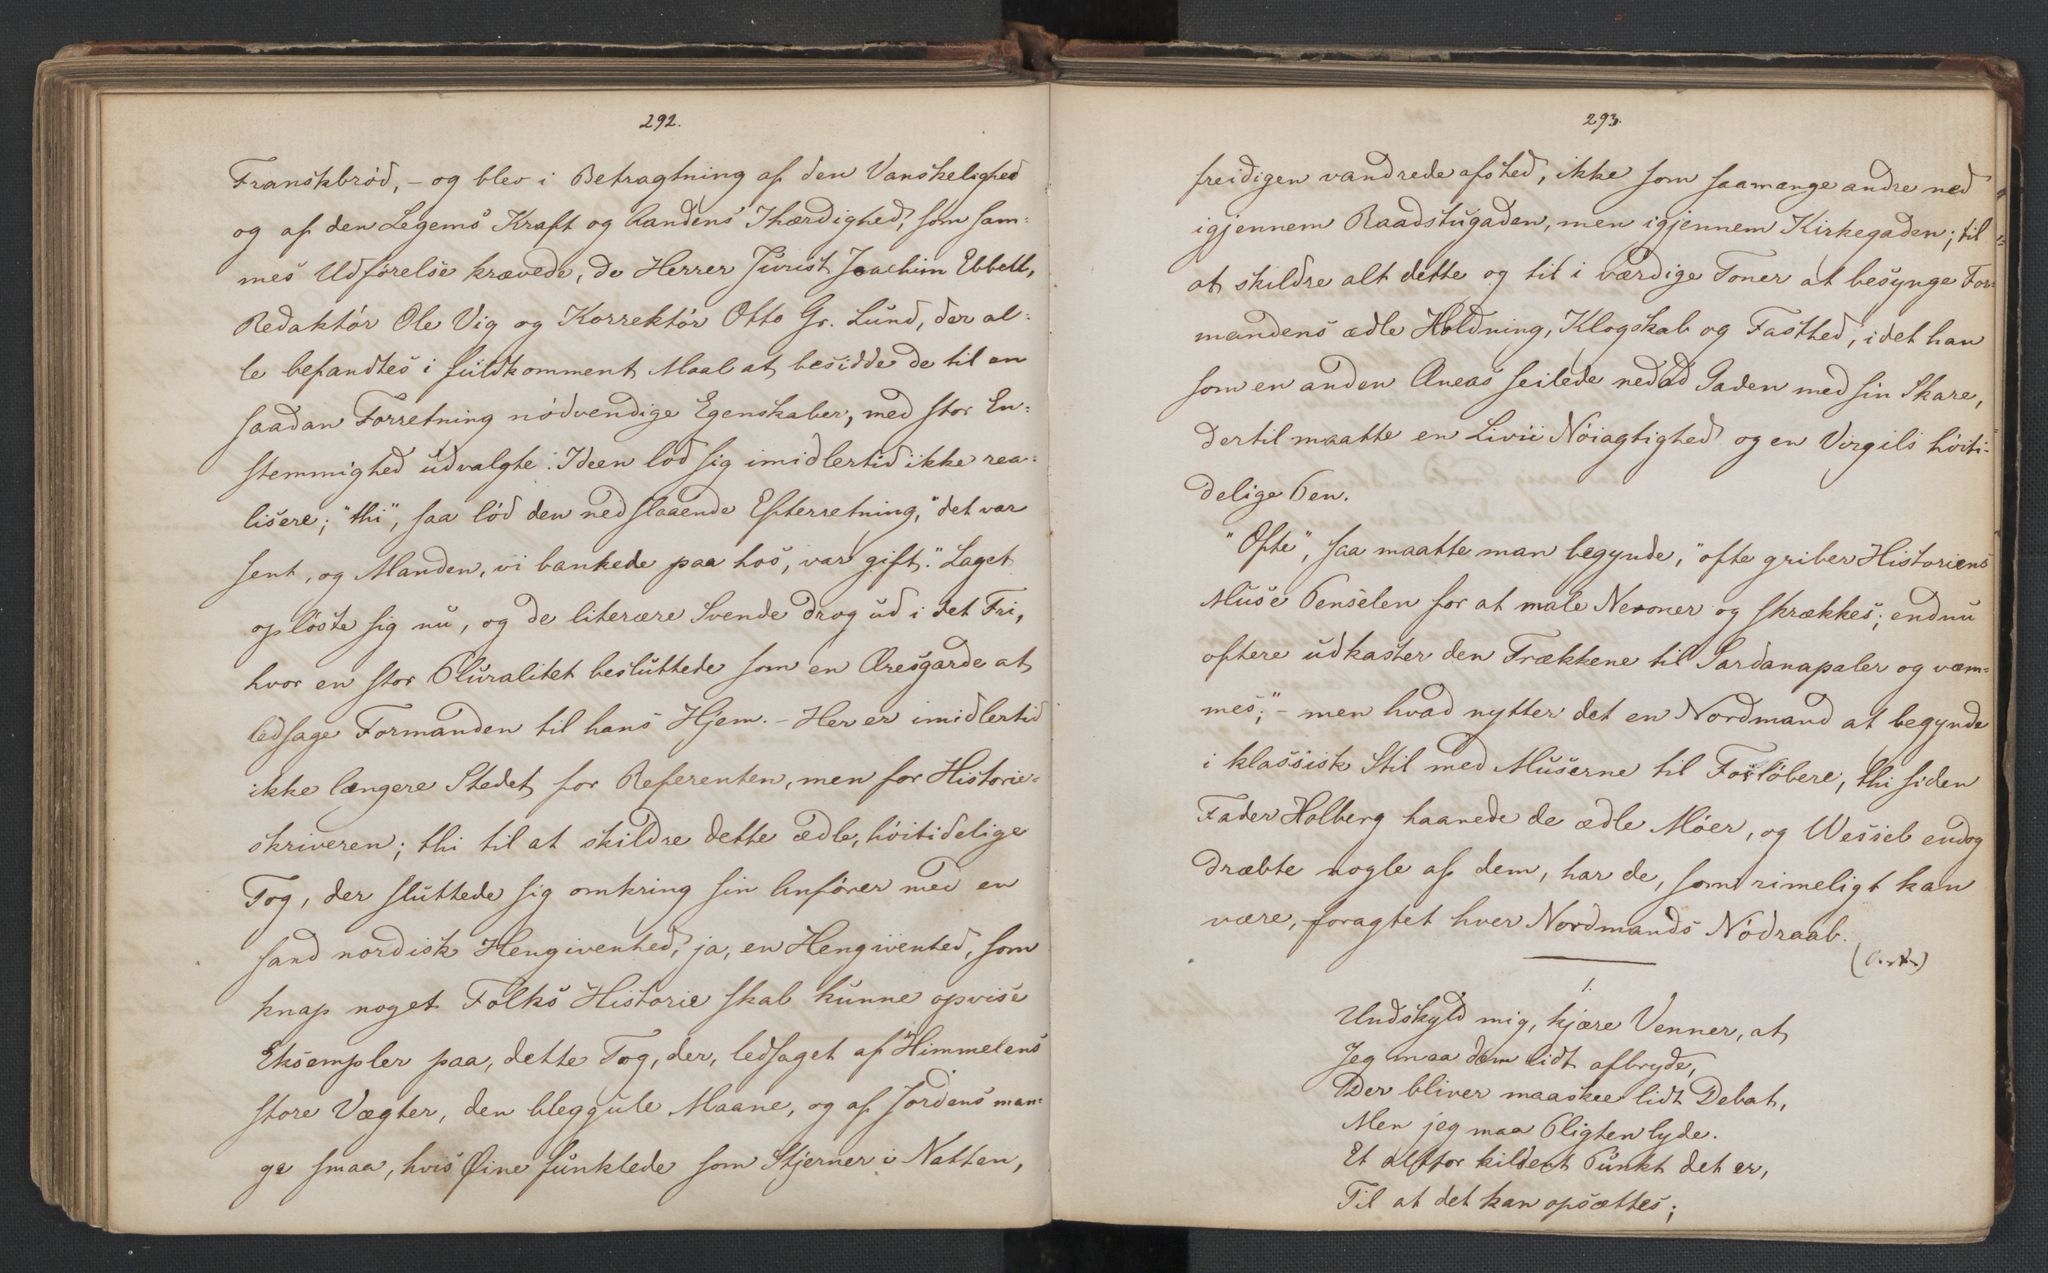 292.
Franskbrød, – og blev i Betragtning af den Vanskelighed
og af den Legems Kraft og Aandens Ihærdighed, som sam-
mes Udførelse krævede, de Herrer Jurist Joachim Ebbell,
Redaktør Ole Vig og Korrektør Otto Gr. Lund, der al-
le befandtes i fuldkomment Maal at besidde de til en
saadan Forretning nødvendige Egenskaber, med stor En-
stemmighed udvalgte. Ideen lod sig imidlertid ikke rea-
lisere; "thi", saa lød den nedslaaende Efterretning, "det var
sent, og Manden, vi bankede paa hos, var gift". Laget
opløste sig nu, og de literære Svende drog ud i det Fri,
hvor en stor Pluralitet besluttede som en Æresgarde at
ledsage Formanden til hans Hjem. – Her er imidlertid
ikke længere Stedet for Referenten, men for Historie-
skriveren; thi til at skildre dette ædle, høitidelige
Tog, der sluttede sig omkring sin Anfører med en
sand nordisk Hengivenhed, ja, en Hengivenhed, som
knap noget Folks Historie skal kunne opvise
Eksempler paa, dette Tog, der, ledsaget af Himmelens
store Vægter, den bleggule Maane, og af Jordens man-
ge smaa, hvis Øine funklede som Stjerner i Natten,
293.
freidigen vandrede afsted, ikke som saamange andre ned
igjennem Raadstugaden, men igjennem Kirkegaden; til
at skildre alt dette og til i værdige Toner at besynge For-
mandens ædle Holdning, Klogskab og Fasthed, idet han
som en anden Æneas seilede nedad Gaden med sin Skare,
dertil maatte en Livii Nøiagtighed og en Virgils høiti-
delige Pen.
"Ofte", saa maatte man begynde, "ofte griber Historiens
Muse Penselen for at male Neroner og skrækkes; endnu
oftere udkaster den Trækkene til Sardanapaler og væm-
mes;" – men hvad nytter det en Nordmand at begynde
i klassisk Stil med Muserne til Forløbere, thi siden
Fader Holberg haanede de ædle Møer, og Wessel endog
dræbte nogle af dem, har de, som rimeligt kan
være, foragtet hver Nordmands Nødraab.
1.
Undskyld mig, kjære Venner, at
Jeg maa dem lidt afbryde,
Der bliver maaskee lidt Debat,
Men jeg maa Pligten lyde.
Et altfor kildent Punkt det er,
Til at det kan opsættes;